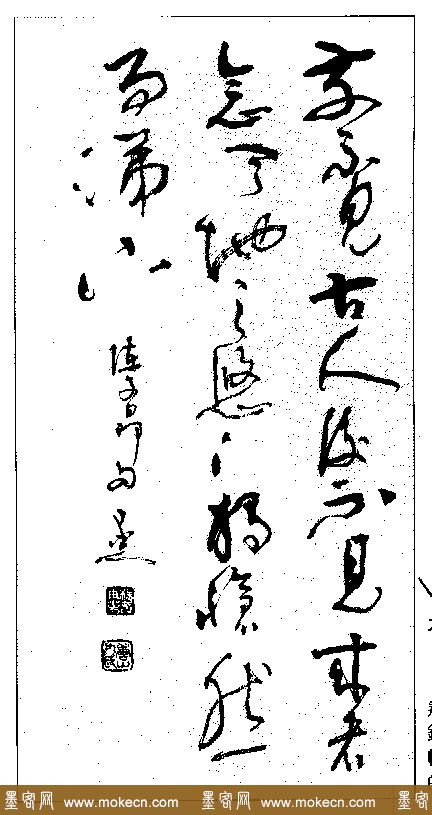 前不见古人后不见来者
念天地之悠悠独怆然
而涕下
陈子昂句
墨客网 www.mokecn.com 墨客网 www.mokecn.com 墨客网